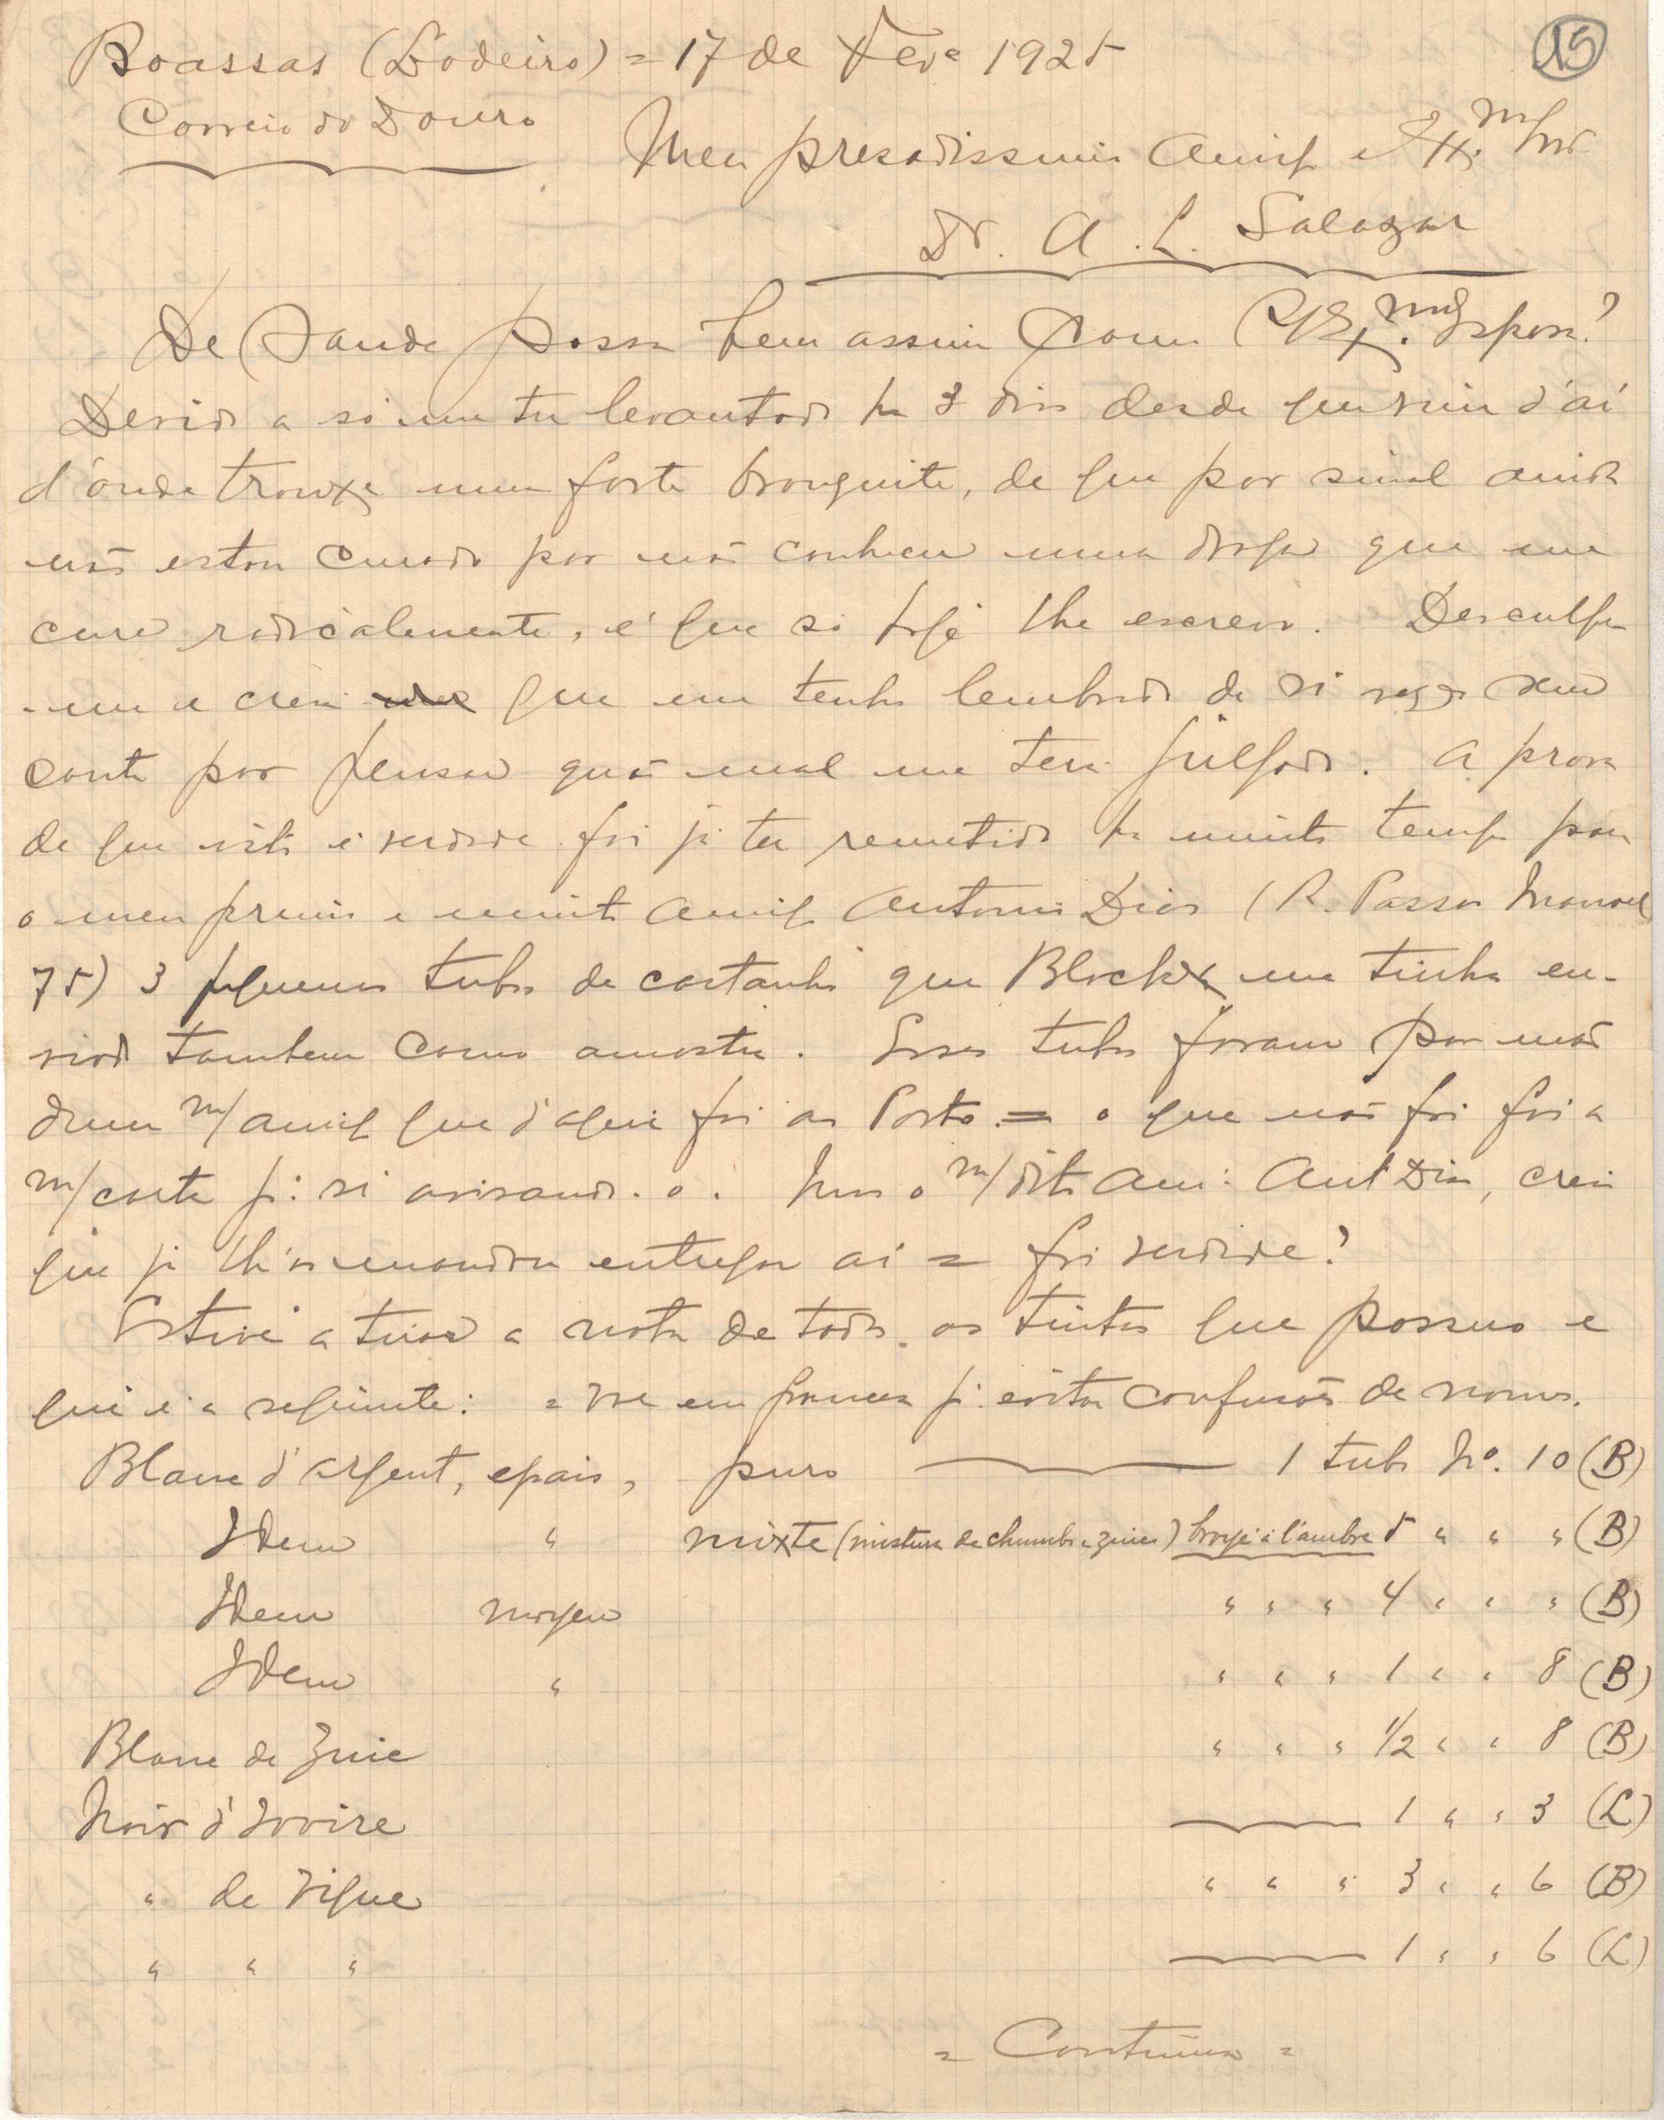 15
Boassas (Lodeiro) = 17 de Fevº 1925
Correio do Douro
Meu presadissimo Amigº e Ex.mo Snr
Dr. A. L. Salazar
De saude passa bem assim como Ex.ma Esposa?
Devido a só me ter levantado ha 3 dias desde que vim d'aí
d'onde trouxe uma forte bronquite, de que por sinal ainda
não estou curado por não conhecer uma droga que me
cure radicalmente, é que só hoje lhe escrevo. Desculpe
-me e creia que me tenho lembrado de si sem
conta por pensar quão mal me terá julgado. A prova
de que isto é verdade foi já ter remetido ha muito tempo para
o meu primo e muito amigº Antonio Dias (R. Passos Manoel
75) 3 pequenos tubos de castanho que Blockx me tinha en-
viado tambem como amostra. Esses tubos foram por mão
dum m/ amigº que d'aqui foi ao Porto = o que não foi foi a
m/ carta p: si avisando-o. Mas o m/ dito Am: Antº Dias, creio
que já lh'os mandou entregar aí = foi verdade?
Estive a tirar a nota de todas as tintas que possuo e
que é a seguinte: = vae em francez p: evitar confusão de nomes.
Blanc d'argent, epais, puro 1 tubo Nº. 10 (B)
Idem " mixte (mistura de chumbo e zinco) broyé à l'ambre 5 " " " (B)
Idem moyen " " " 4 " " " (B)
Idem " " " " 1 " " 8 (B)
Blanc de Zinc " " " 1/2 " " 8 (B)
Noir d'Ivoire 1 " " 3 (L)
" de Vigne " " " 3 " " 6 (B)
" " " 1 " " 6 (L)
= Continua =